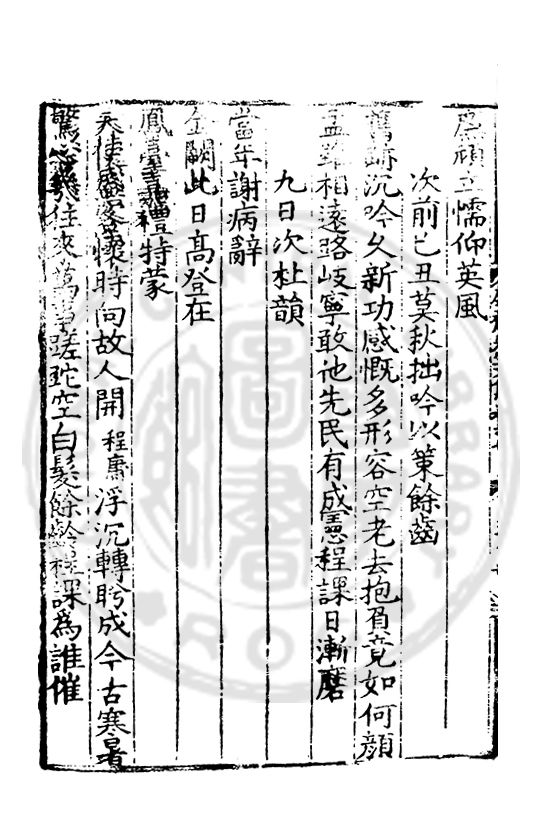 廉頑立懦仰英風
次前己丑莫秋拙吟以策餘齒
舊沉吟久新功感慨多形容空老去抱負竟如何顏
孟雖相遠路岐寧敢他先民有成憲程課日漸磨
九日次杜韻
當年謝病辭
金闕此日高登在
鳳臺禮特蒙
天使客懷時向故人開程浮沉轉眄成今古寒暑
驚心幾往來萬事蹉跎空白髮餘齡程課為誰催